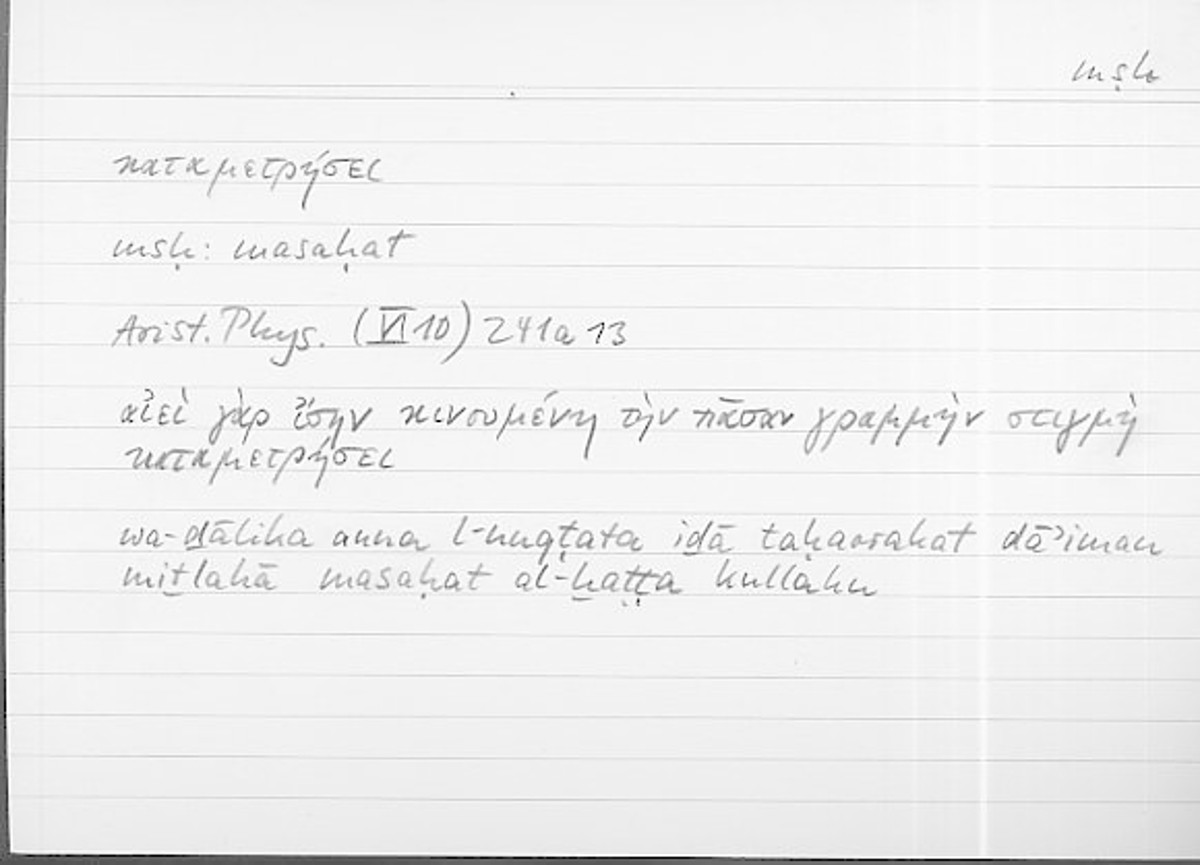 mṣh
καταμετρήσει
msḥ: masaḥat
Arist. Phys. (VI 10) 241a 13
αἰεὶ γὰρ ἴσην κινουμένη τὴν πᾶσαν γραμμὴν στιγμὴ
καταμετρήσει
wa-ḏālika anna l-nuqṭata iḏā taḥarrakat dāʾiman
miṯlahā masaḥat al-ḫaṭṭa kullahu